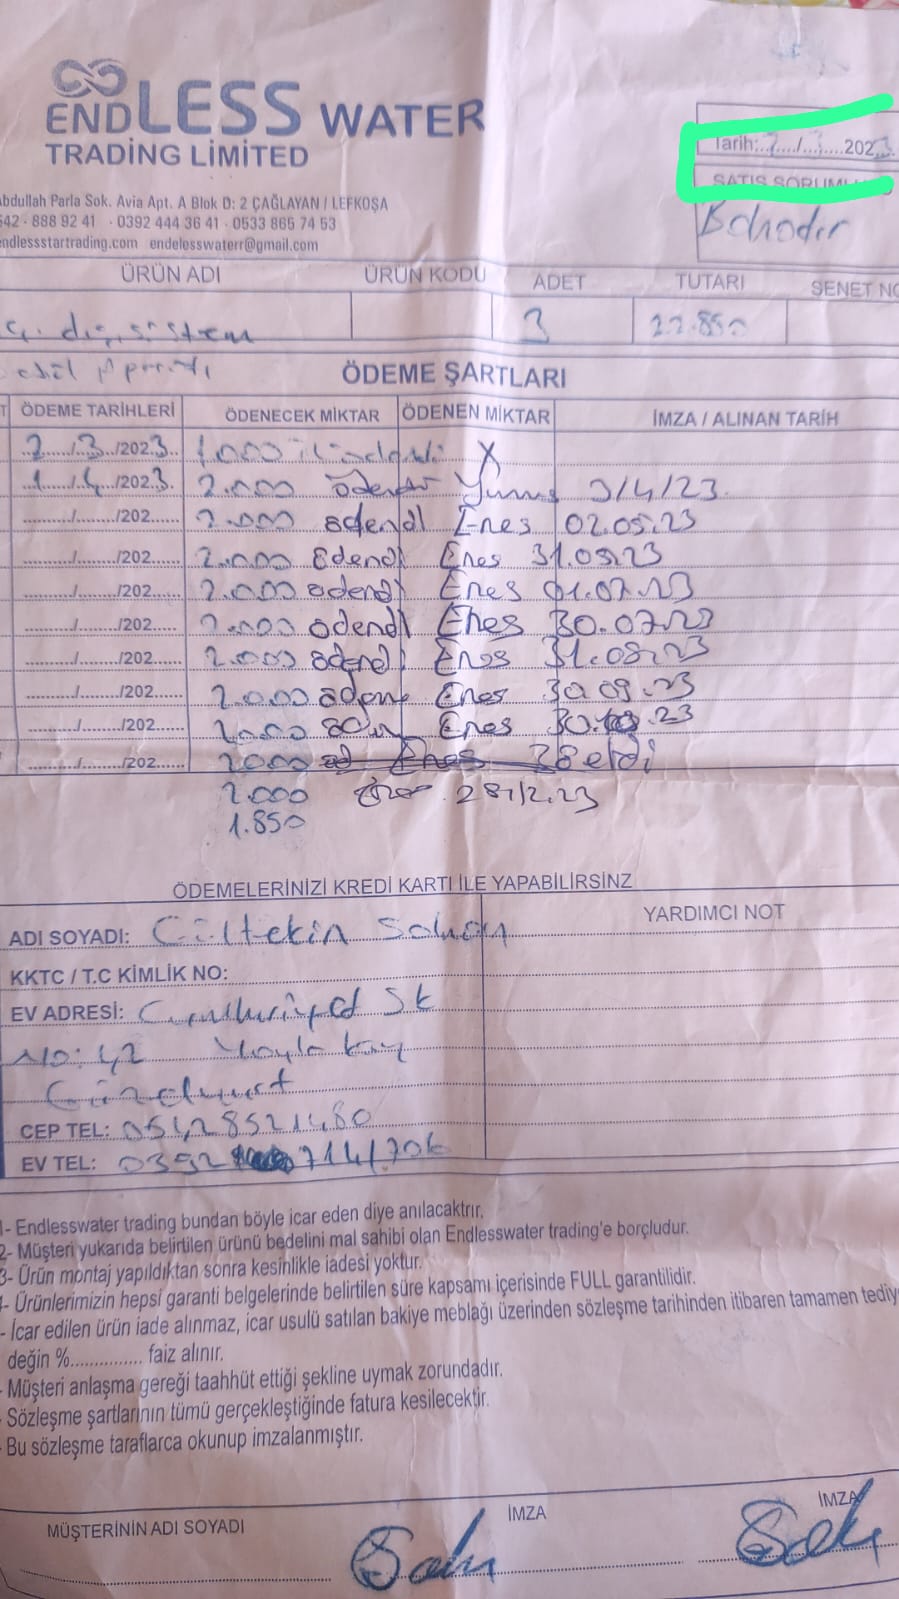 ENDLESS WATER
TRADING LİMİTED
Abdullah Parla Sok. Avia Apt. A Blok D: 2 ÇAĞLAYAN / LEFKOŞA
542 - 888 92 41 - 0392 444 36 41 - 0533 865 74 53
endlessstartrading.com endelesswaterr@gmail.com
Tarih: /3 2023
SATIŞ SORUMLU
ÜRÜN ADI ÜRÜN KODU ADET TUTARI SENET NO
sistem 3 22.850
ÖDEME ŞARTLARI
ÖDEME TARİHLERİ ÖDENECEK MİKTAR ÖDENEN MİKTAR İMZA / ALINAN TARİH
2/3/2023 1.000 X
1/4/2023 2.000 ödendi Yunus 3/4/23
/ /202 2.000 ödendi Enes 02.05.23
/ /202 2.000 ödendi Enes 31.05.23
/ /202 2.000 ödendi Enes 01.07.23
/ /202 2.000 ödendi Enes 30.07.23
/ /202 2.000 ödendi Enes 31.08.23
/ /202 2.000 Enes 30.09.23
/ /202 2.000 Enes 30.10.23
/ /202 2000
2.000 28/12.23
1.850
ÖDEMELERİNİZİ KREDİ KARTI İLE YAPABİLİRSİNZ
ADI SOYADI: Gültekin YARDIMCI NOT
KKTC / T.C KİMLİK NO:
EV ADRESİ: Cumhuriyet Sk
No: 42 Yayla köy
Güzelyurt
CEP TEL: 05428521480
EV TEL: 0392 714/706
1- Endlesswater trading bundan böyle icar eden diye anılacaktır.
2- Müşteri yukarıda belirtilen ürünü bedelini mal sahibi olan Endlesswater trading'e borçludur.
3- Ürün montaj yapıldıktan sonra kesinlikle iadesi yoktur.
4- Ürünlerimizin hepsi garanti belgelerinde belirtilen süre kapsamı içerisinde FULL garantilidir.
- İcar edilen ürün iade alınmaz, icar usulü satılan bakiye meblağı üzerinden sözleşme tarihinden itibaren tamamen tediy
değin %............... faiz alınır.
- Müşteri anlaşma gereği taahhüt ettiği şekline uymak zorundadır.
- Sözleşme şartlarının tümü gerçekleştiğinde fatura kesilecektir.
- Bu sözleşme taraflarca okunup imzalanmıştır.
MÜŞTERİNİN ADI SOYADI İMZA İMZA